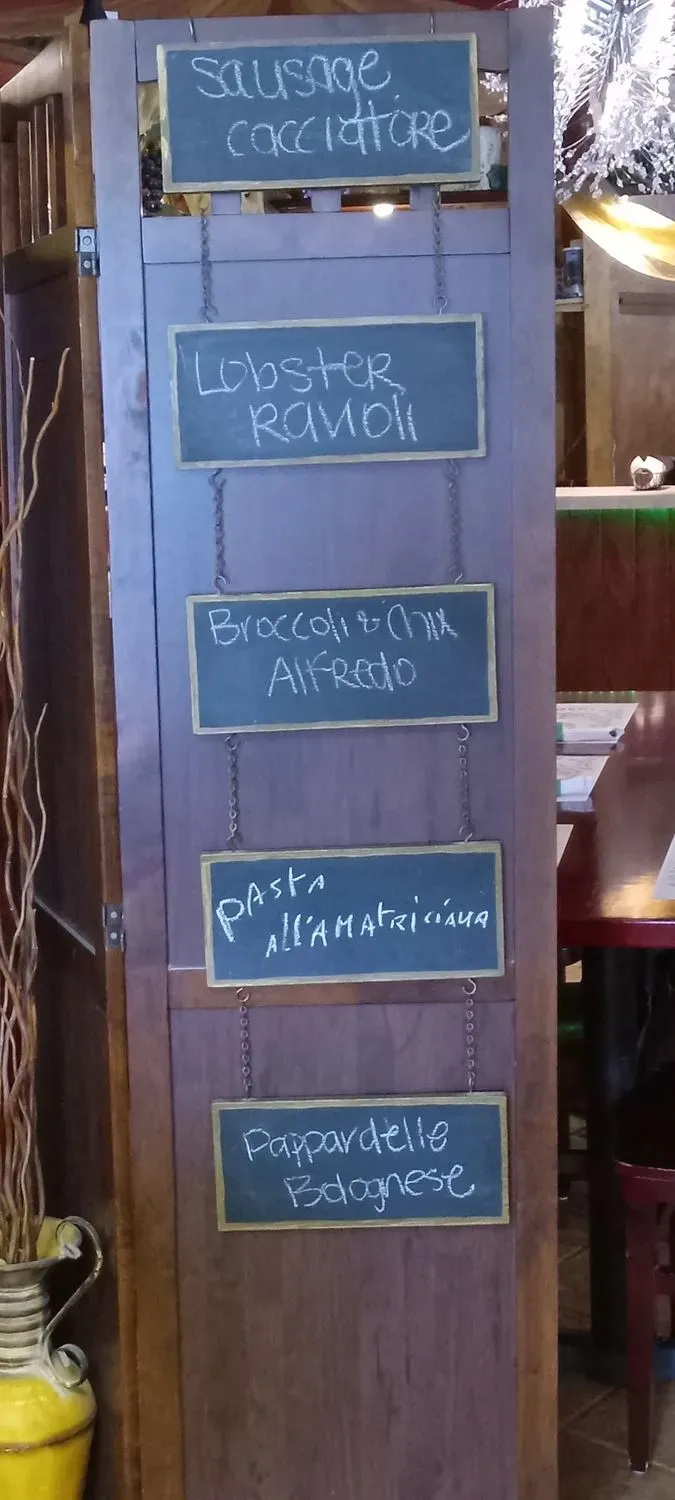 Sausage
cacciattore
Lobster
Ravioli
Broccoli & Chix
Alfredo
PAStA
All'AMAtRiciana
Pappardelle
Bolognese